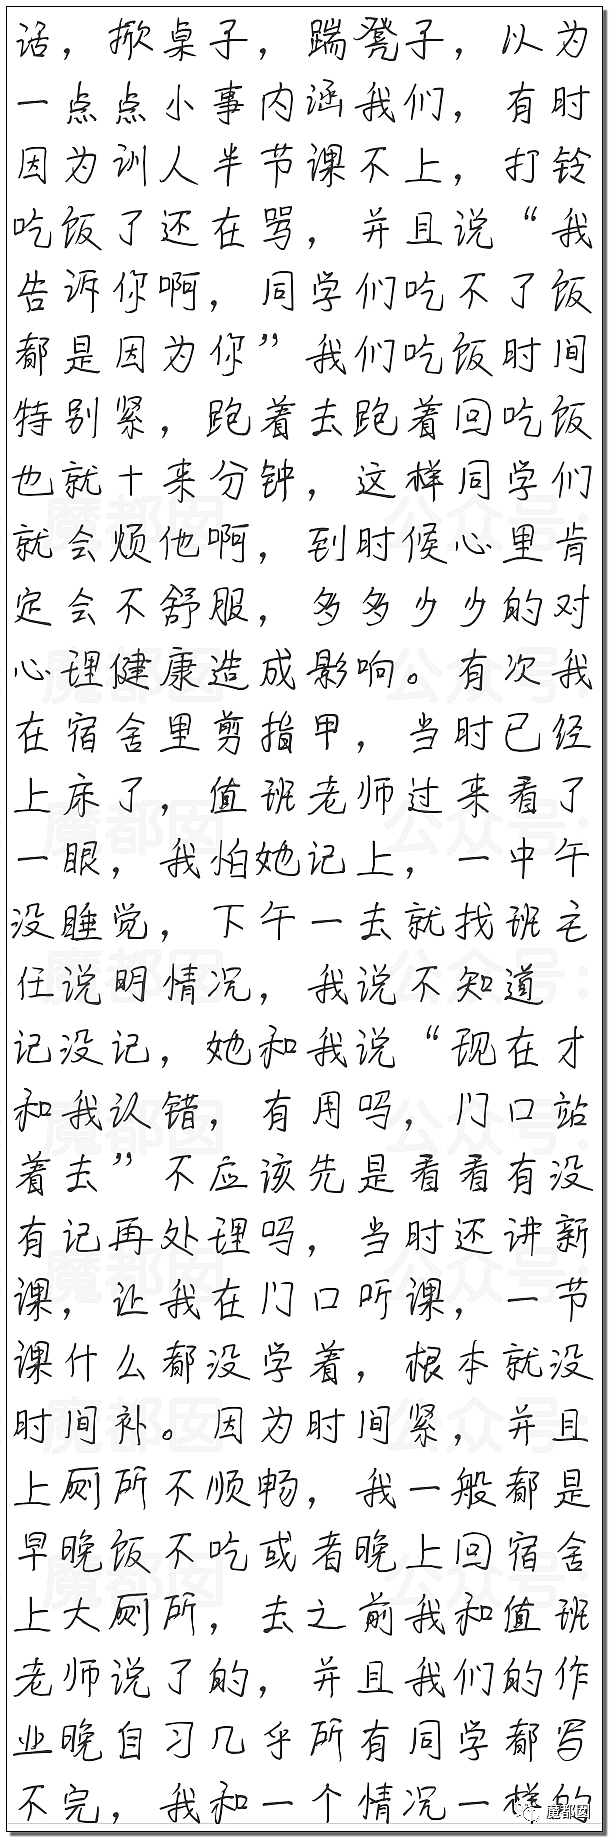 话，掀桌子，踹凳子，以为
一点点小事内涵我们，有时
因为训人半节课不上，打铃
吃饭了还在骂，并且说“我
告诉你啊，同学们吃不了饭
都是因为你”我们吃饭时间
特别紧，跑着去跑着回吃饭
也就十来分钟，这样同学们
就会烦他啊，到时候心里肯
定会不舒服，多多少少的对
心理健康造成影响。有次我
在宿舍里剪指甲，当时已经
上床了，值班老师过来看了
一眼，我怕她记上，一中午
没睡觉，下午一去就找班主
任说明情况，我说不知道
记没记，她和我说“现在才
和我认错，有用吗，门口站
着去”不应该先是看看有没
有记再处理吗，当时还讲新
课，让我在门口听课，一节
课什么都没学着，根本就没
时间补。因为时间紧，并且
上厕所不顺畅，我一般都是
早晚饭不吃或者晚上回宿舍
上大厕所，去之前我和值班
老师说了的，并且我们的作
业晚自习几乎所有同学都写
不完，我和一个情况一样的
魔都囡
公众号：